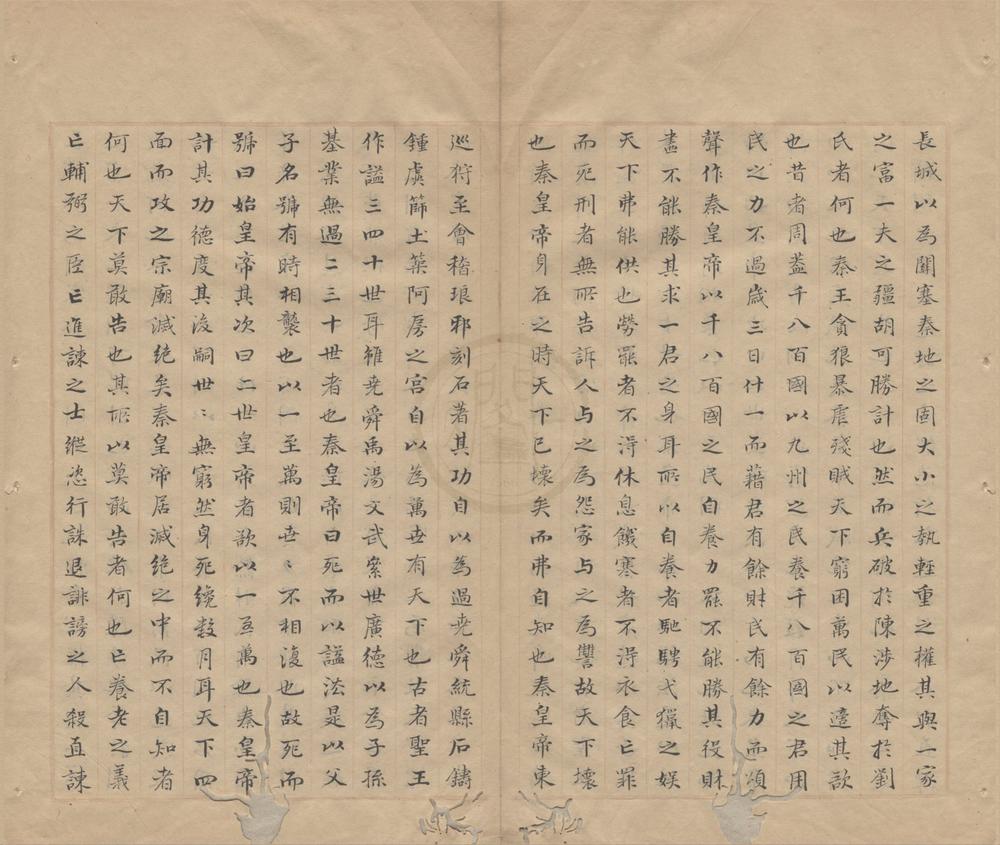 長城以為關塞秦地之固大小之埶輕重之權其與一家
之富一夫之彊胡可勝計也然而兵破於陳涉地奪於劉
氏者何也秦王貪狼暴虐殘賊天下窮困萬民以適其欲
也昔者周葢千八百國以九州之民養千八百國之君用
民之力不過歲三日什一而藉君有餘財民有餘力而頌
聲作秦皇帝以千八百國之民自養力罷不能勝其役財
盡不能勝其求一君之身耳所以自養者馳騁弋獵之娛
天下弗能供也勞罷者不得休息饑寒者不得衣食亡罪
而死刑者無所告訴人与之為怨家与之為讐故天下壞
也秦皇帝身在之時天下已壞矣而弗自知也秦皇帝東
巡狩至會稽琅邪刻石著其功自以為過尭舜統縣石鑄
鍾虡篩土築阿房之宮自以為萬世有天下也古者聖王
作謚三四十世耳雖尭舜禹湯文武絫世廣德以為子孫
基業無過二三十世者也秦皇帝曰死而以謚法是以父
子名號有時相襲也以一至萬則世〻不相復也故死而
號曰始皇帝其次曰二世皇帝者欲以一至萬也秦皇帝
計其功德度其後嗣世〻無窮然身死纔數月耳天下四
面而攻之宗廟滅絕矣秦皇帝居滅絕之中而不自知者
何也天下莫敢告也其所以莫敢告者何也亡養老之義
亡輔弼之臣亡進諫之士縱恣行誅退誹謗之人殺直諫